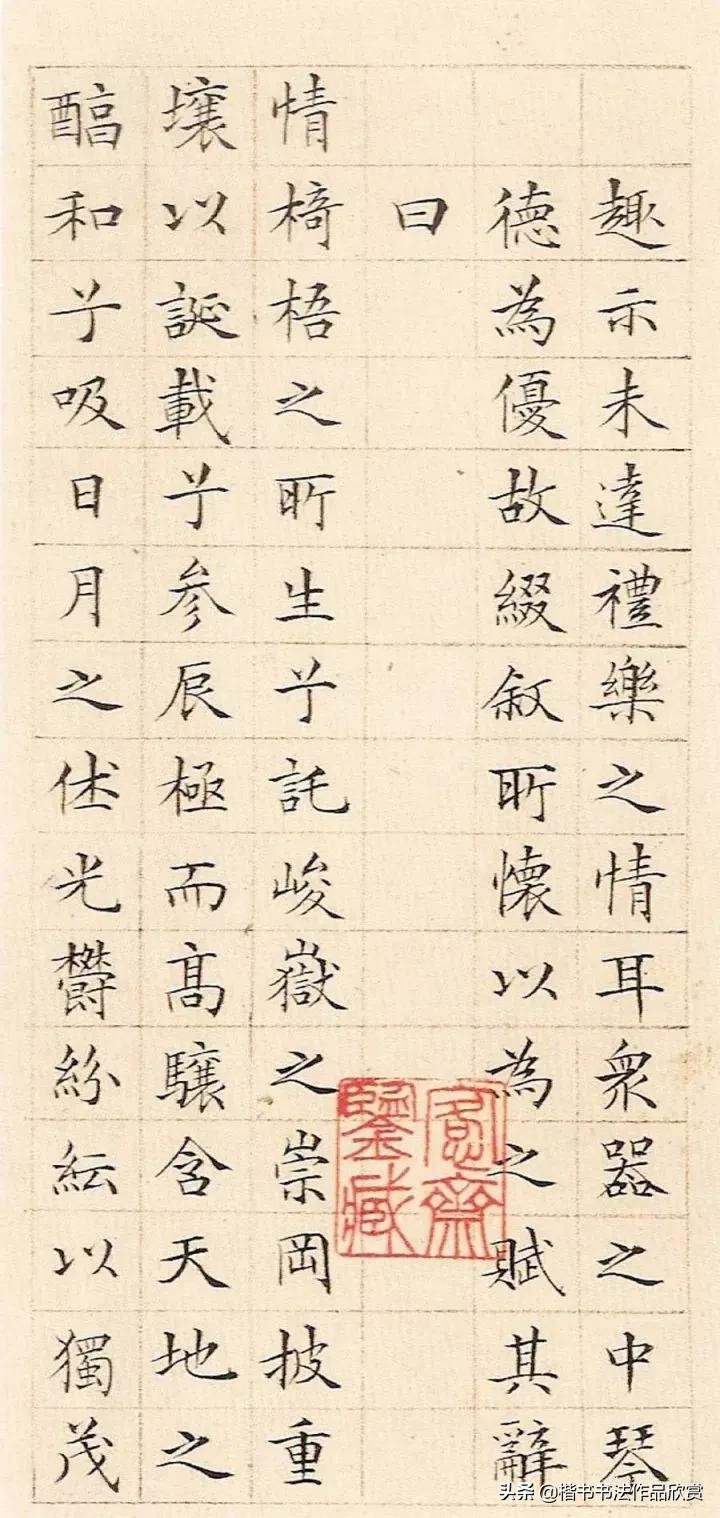 趣示未達禮樂之情耳衆器之中琴
德為優故綴叙所懷以為之賦其辭
曰
情椅梧之所生兮託峻嶽之崇岡披重
壤以誕載兮參辰極而髙驤含天地之
醇和兮吸日月之休光鬱紛紜以獨茂
愙齋
鑒藏
头条 @楷书书法作品欣赏